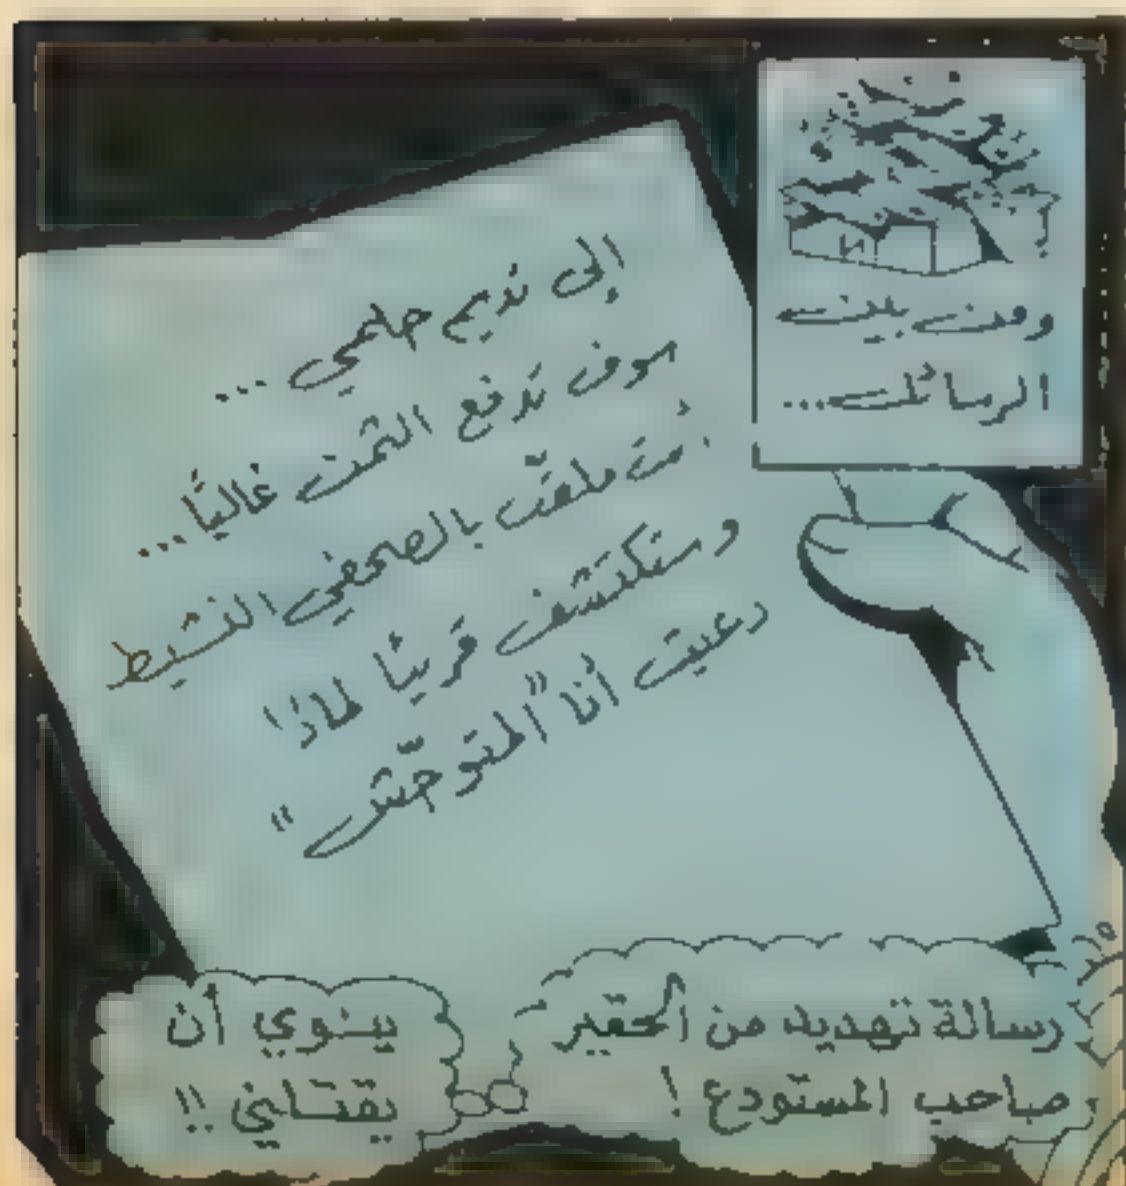 ومن بين
الرسائل...
إلى نديم حلمي...
سوف تدفع الثمن غاليًا...
أنت ملقّب بالصحفي النشيط
وستكتشف قريبًا لماذا
دعيت أنا "المتوحّش"
رسالة تهديد من الحقير
صاحب المستودع !
ينوي أن
يقتلني !!